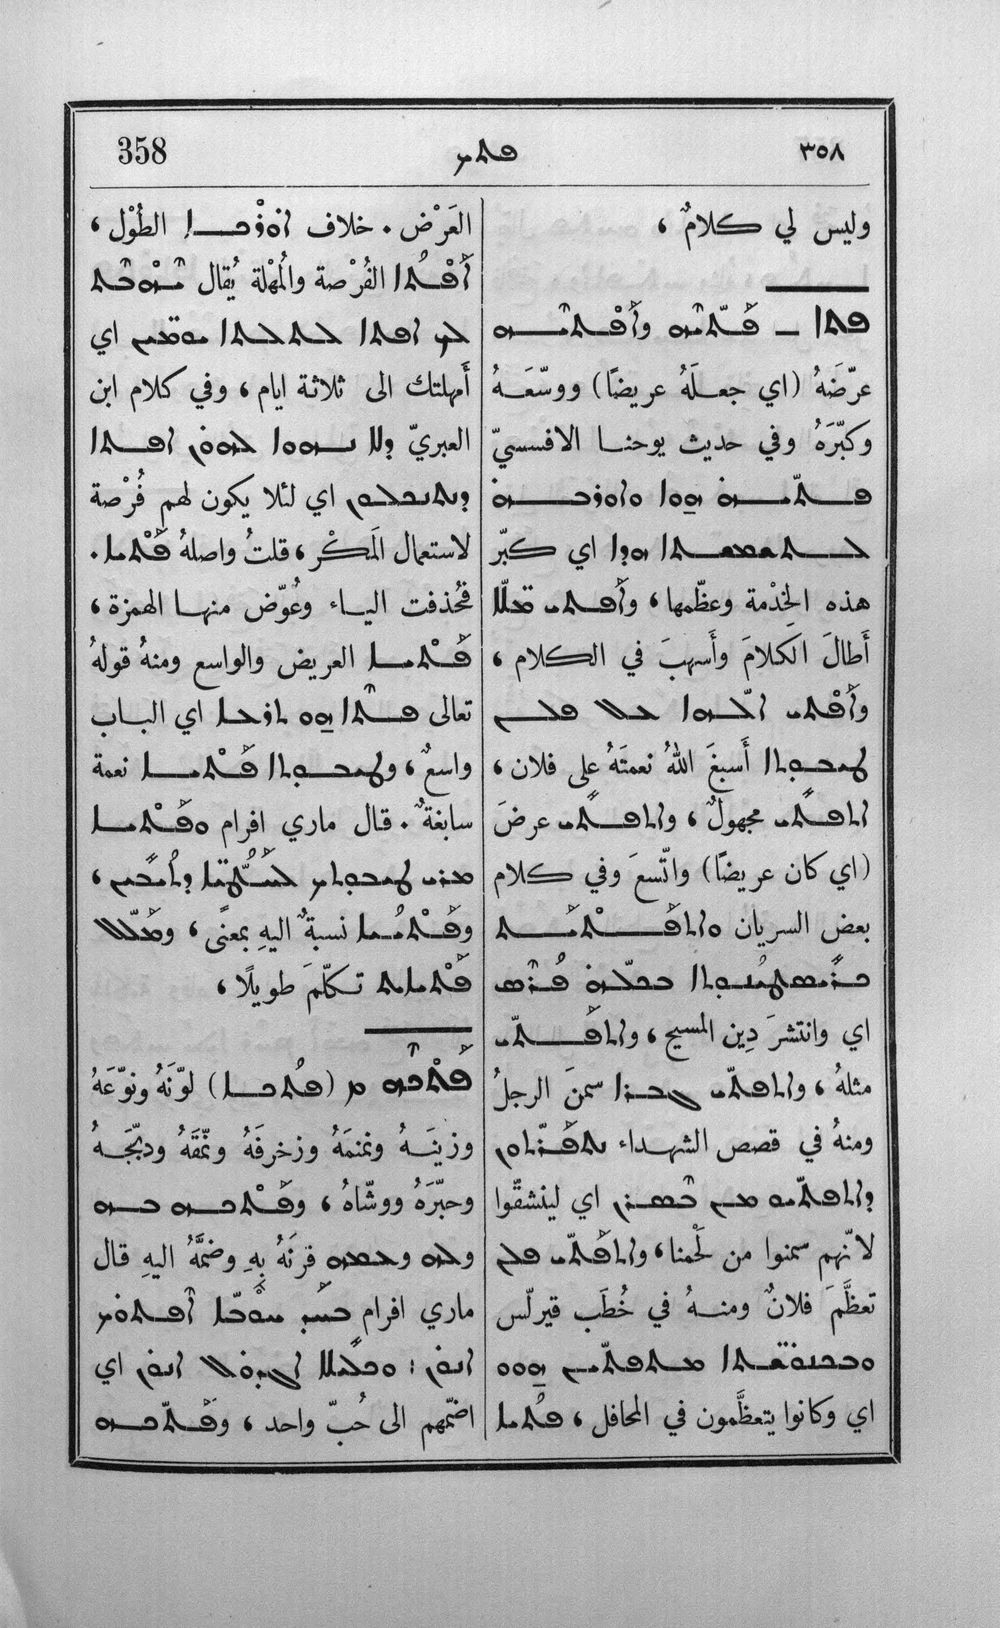 358 ܦܬܟ ٣٥٨
وليس لي كلامٌ ،
ܦܬܐ ـ ܦܰܬܝܶܗ وܐܰܦܬܝܶܗ
عرّضَهُ (اي جعلَهُ عريضًا) ووسّعَهُ
وكبّرَهُ وفي حديث يوحنا الافسسيّ
ܗܘܐ
ܠܬܫܡܫܬܐ ܗܕܐ اي كبّر
هذه الخِدْمة وعظّمها ، وܐܰܦܬܝ ܡܠܠܐ
أَطالَ الكلامَ وأَسهبَ في الكلام ،
وܐܰܦܬܝ ܐܠܗܐ ܥܠ ܦܠܢ
ܛܝܒܘܬܐ أَسبغَ اللهُ نعمتَهُ على فلان ،
ܐܬܦܬܝ مجهولٌ ، وܐܬܦܬܝ عرضَ
(اي كان عريضًا) واتّسعَ وفي كلام
بعض السريان
ܟܪܣܛܝܢܘܬܐ
اي وانتشرَ دِين المسيح ، وܐܬܦܬܝ
مثلهُ ، وܐܬܦܬܝ ܓܒܪܐ سمنَ الرجلُ
ومنهُ في قصص الشهداء
ܡܢ ܒܣܪܢ اي لينشقّوا
لانّهم سمنوا من لحْمنا ، وܐܬܦܬܝ ܦܠܢ
تعظَّمَ فلانٌ ومنهُ في خُطَب قيرلّس
ܘܒܟܢܘܫܬܐ ܡܬܦܬܝܢ ܗܘܘ
اي وكانوا يتعظَّمون في المحافل ، ܦܬܝܐ
العَرْض . خلاف ܐܘܪܟܐ الطُوْل ،
ܐܦܬܐ الفُرْصة والمُهْلة يُقال ܝܗܒܬ
ܠܟ ܐܦܬܐ ܠܬܠܬܐ ܝܘܡܝܢ اي
أَمهلتك الى ثلاثة ايام ، وفي كلام ابن
العبريّ ܕܠܐ ܢܗܘܐ ܠܗܘܢ ܐܦܬܐ
ܕܢܬܢܟܠܘܢ اي لئلا يكون لهم فُرْصة
لاستعمال المَكْر ، قلتُ واصلهُ ܦܬܝܐ .
فحُذفت الياء وعُوّض منها الهمزة ،
ܦܬܝܐ العريض والواسع ومنهُ قولهُ
تعالى ܦܬܐ ܗܘ ܬܪܥܐ اي الباب
واسعٌ ، وܛܝܒܘܬܐ ܦܬܝܬܐ نعمة
سابغةٌ . قال ماري افرام ܘܦܬܝܐ
ܡܪܝ ܛܝܒܘܬܟ ܠܚܛܝܐ ܕܬܝܒܝܢ ،
وܦܬܝܝܐ نسبةٌ اليهِ بمعنًى ، وܡܠܠ
ܦܬܝܐܝܬ تكلّمَ طويلًا ،
ܦܬܟܗ ܡ (ܦܬܟܐ) لوّنَهُ ونوّعَهُ
وزينَهُ ونمنمَهُ وزخرفَهُ ونمّقَهُ ودبّجَهُ
وحبّرَهُ ووشّاهُ ، وܦܬܟܗ ܒܗ
وܠܗ وܥܡܗ قرنَهُ بِهِ وضمَّهُ اليهِ قال
ماري افرام ܒܚܕ ܚܘܒܐ ܐܦܬܘܟ
ܐܢܘܢ : ܐܢܘܢ اي
اضمّهم الى حُبّ واحد ، وܦܬܟܗ